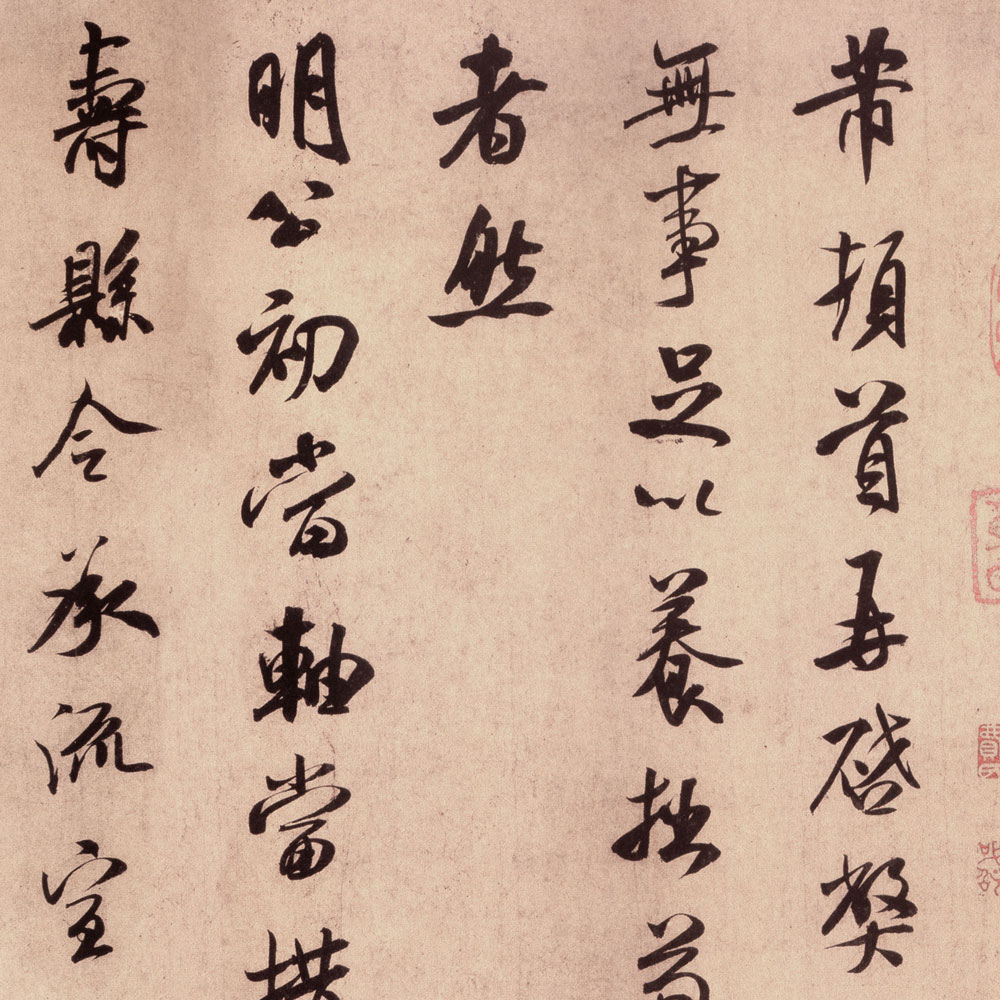 芾頓首再啓弊
無事足以養拙苟
者然
明公初當軸當措
壽縣令承流宣